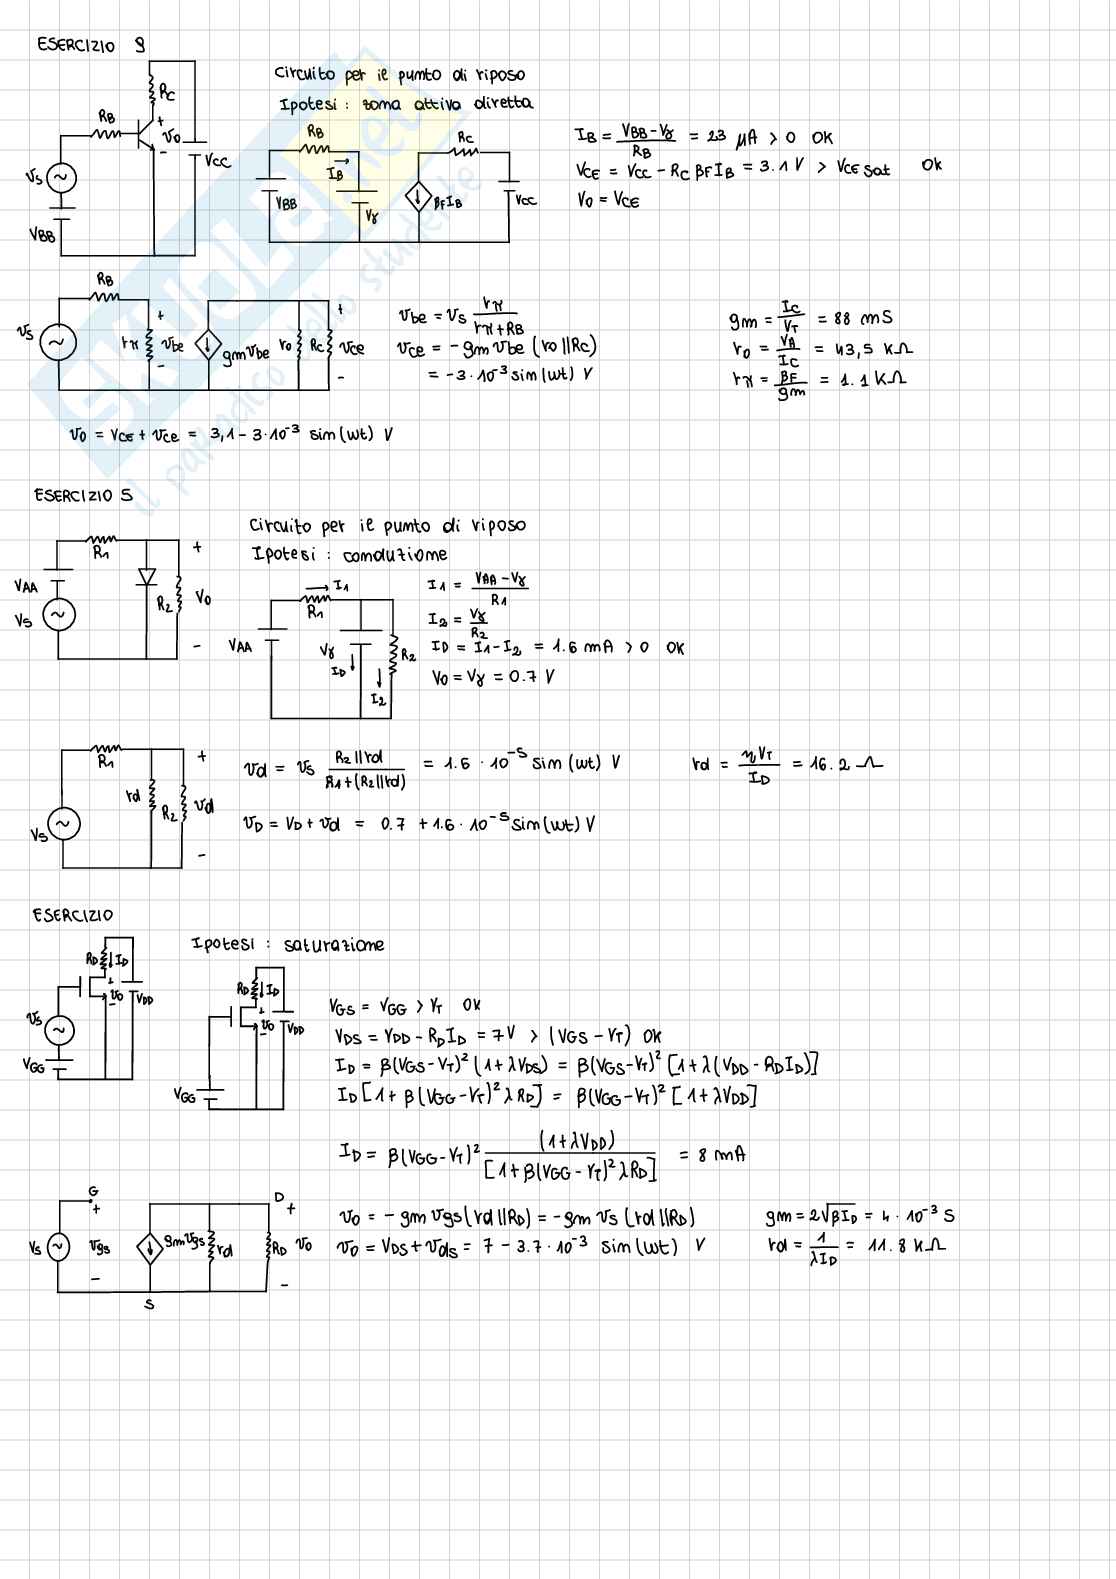 ESERCIZIO 9
Circuito per il punto di riposo
Ipotesi : zona attiva diretta
RB
RC
+
vo
-
VCC
vs
VBB
RB
IB
VBB
Vγ
RC
βFIB
VCC
IB = (VBB - Vγ)/RB = 23 μA > 0 OK
VCE = VCC - RC βF IB = 3.1 V > VCE sat OK
Vo = VCE
RB
vs
rπ
+
vbe
-
gmvbe
ro
RC
+
vce
-
vbe = vs rπ/(rπ+RB)
vce = -gm vbe (ro||RC)
= -3·10⁻³ sin(wt) V
gm = IC/VT = 88 mS
ro = VA/IC = 43,5 KΩ
rπ = βF/gm = 1.1 KΩ
vo = VCE + vce = 3,1 - 3·10⁻³ sin(wt) V
ESERCIZIO 5
Circuito per il punto di riposo
Ipotesi : conduzione
R1
VAA
Vs
R2
+
Vo
-
I1
R1
VAA
Vγ
ID
R2
I2
I1 = (VAA - Vγ)/R1
I2 = Vγ/R2
ID = I1 - I2 = 1.6 mA > 0 OK
Vo = Vγ = 0.7 V
R1
Vs
rd
R2
+
vd
-
vd = vs (R2||rd)/(R1+(R2||rd)) = 1.6 · 10⁻⁵ sin(wt) V
rd = ηVT/ID = 16.2 Ω
vD = VD + vd = 0.7 + 1.6·10⁻⁵ sin(wt) V
ESERCIZIO
Ipotesi : saturazione
RD
ID
+
vo
-
VDD
vs
VGG
RD
ID
+
vo
-
VDD
VGG
VGS = VGG > VT OK
VDS = VDD - RDID = 7V > (VGS - VT) OK
ID = β(VGS-VT)² (1+λVDS) = β(VGS-VT)² [1+λ(VDD - RDID)]
ID [1+ β(VGG-VT)² λRD] = β(VGG-VT)² [1+λVDD]
ID = β(VGG-VT)² (1+λVDD)/[1+β(VGG-VT)² λRD] = 8 mA
G
+
Vs
vgs
-
gmvgs
rd
D
+
RD
vo
-
S
vo = -gm vgs(rd||RD) = -gm vs (rd||RD)
vo = VDS + vds = 7 - 3.7·10⁻³ sin(wt) V
gm = 2√βID = 4·10⁻³ S
rd = 1/λID = 11.8 KΩ
SKUOLA.net
il paradiso dello studente